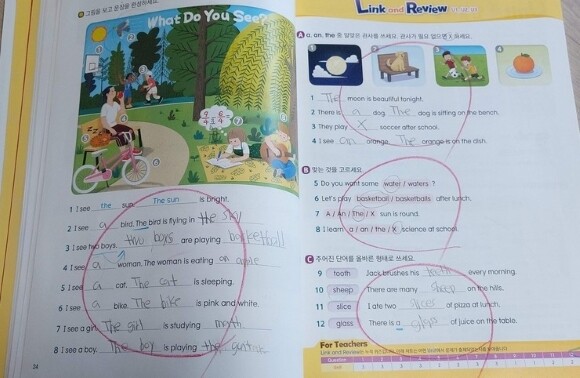 그림을 보고 문장을 완성하세요.
What Do You See?
1 I see the sun. The sun is bright.
2 I see a bird. The bird is flying in the sky
3 I see two boys. two boys are playing basketball
4 I see a woman. The woman is eating an apple
5 I see a cat. The cat is sleeping.
6 I see a bike. The bike is pink and white.
7 I see a girl. The girl is studying math
8 I see a boy. The boy is playing the guitar.
34
Link and Review
A a, an, the 중 알맞은 관사를 쓰세요. 관사가 필요 없으면 X 하세요.
1 The moon is beautiful tonight.
2 There is a dog. The dog is sitting on the bench.
3 They play X soccer after school.
4 I see an orange. The orange is on the dish.
B 맞는 것을 고르세요.
5 Do you want some water / waters ?
6 Let's play basketball / basketballs after lunch.
7 A / An / The / X sun is round.
8 I learn a / an / the / X science at school.
C 주어진 단어를 올바른 형태로 쓰세요.
9 tooth Jack brushes his teeth every morning.
10 sheep There are many sheep on the hills.
11 slice I ate two slices of pizza at lunch.
12 glass There is a glass of juice on the table.
For Teachers
Link and Review
Question
Unit